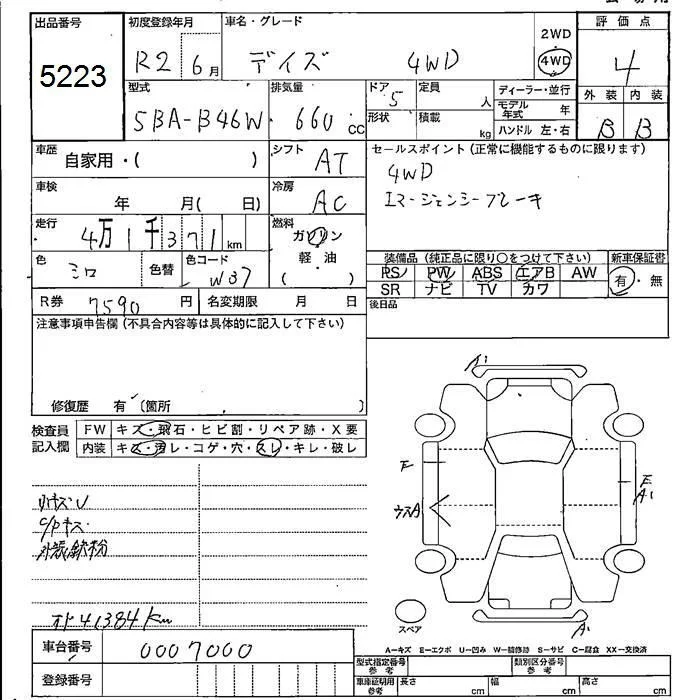 出品番号 初度登録年月 車名・グレード 2WD 評価点
5223 R2 6月 デイズ 4WD 4WD 4
型式 排気量 ドア 5 定員 人 ディーラー・並行 外装 内装
5BA-B46W 660 CC 形状 積載 kg モデル年式 年 B B
ハンドル 左・右
車歴 自家用・( ) シフト AT セールスポイント (正常に機能するものに限ります)
4WD
車検 年 月( 日) 冷房 AC エマージェンシーブレーキ
走行 4万1千371km 燃料 ガソリン
軽・油
( )
装備品 (純正品に限り○をつけて下さい) 新車保証書
色 シロ 色替 色コード W37 PS PW ABS エアB AW 有・無
SR ナビ TV カワ
R券 7590円 名変期限 月 日 後日品
注意事項申告欄 (不具合内容等は具体的に記入して下さい)
修復歴 有 〔箇所 〕
検査員記入欄 FW キズ・飛石・ヒビ割・リペア跡・X要
内装 キズ・汚レ・コゲ・穴・スレ・キレ・破レ
A1
F
E
A1
ウスA
リキズU
C/Pキズ
外装鉄粉
オド41384km
スペア
A1
A-キズ E-エクボ U-凹み W-補修跡 S-サビ C-腐食 XX-交換済
車台番号 0007000 型式指定番号 参考 類別区分番号 参考
登録番号 車庫証明用 参考 長さ cm 幅 cm 高さ cm